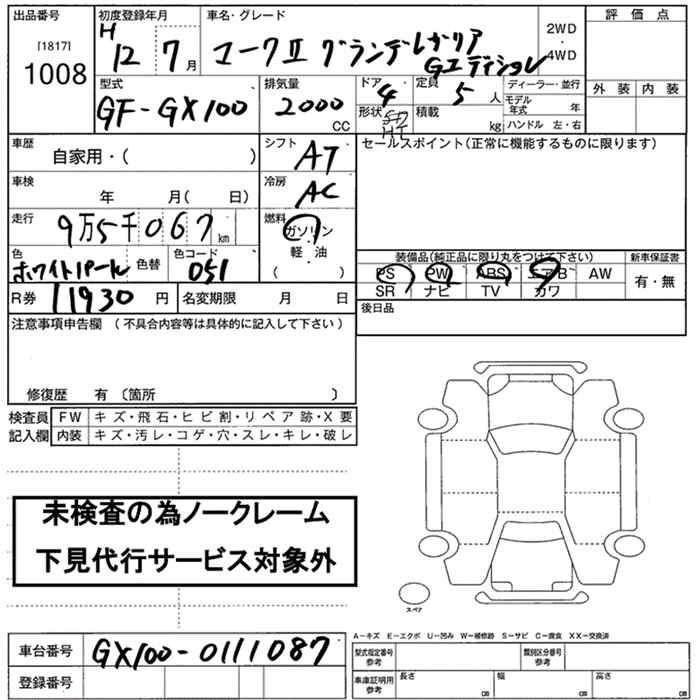 出品番号 初度登録年月 車名・グレード 評価点
[1817]
1008
H
12 7月
マークⅡ グランデ レガリア
Gエディション
2WD
・
4WD
外装 内装
型式 排気量 ドア 定員 ディーラー・並行
GF-GX100 2000 CC 4 5 人 モデル年式 年
形状 積載 kg ハンドル 左・右
HT
車歴 シフト セールスポイント(正常に機能するものに限ります)
自家用・( ) AT
車検 冷房
年 月( 日) AC
走行 燃料
9万5千067 km ガソリン
色 色コード 軽・油
ホワイトパール 色替 051 ( )
装備品(純正品に限り丸をつけて下さい) 新車保証書
PS PW ABS エアB AW 有・無
SR ナビ TV カワ
R券 11930 円 名変期限 月 日
後日品
注意事項申告欄 (不具合内容等は具体的に記入して下さい)
修復歴 有 〔箇所 〕
検査員 FW キズ・飛石・ヒビ割・リペア跡・X要
記入欄 内装 キズ・汚レ・コゲ・穴・スレ・キレ・破レ
未検査の為ノークレーム
下見代行サービス対象外
スペア
A-キズ E-エクボ U-凹み W-補修跡 S-サビ C-腐食 XX-交換済
車台番号 GX100-0111087
型式指定番号 参考 類別区分番号 参考
登録番号
車庫証明用 参考 長さ cm 幅 cm 高さ cm